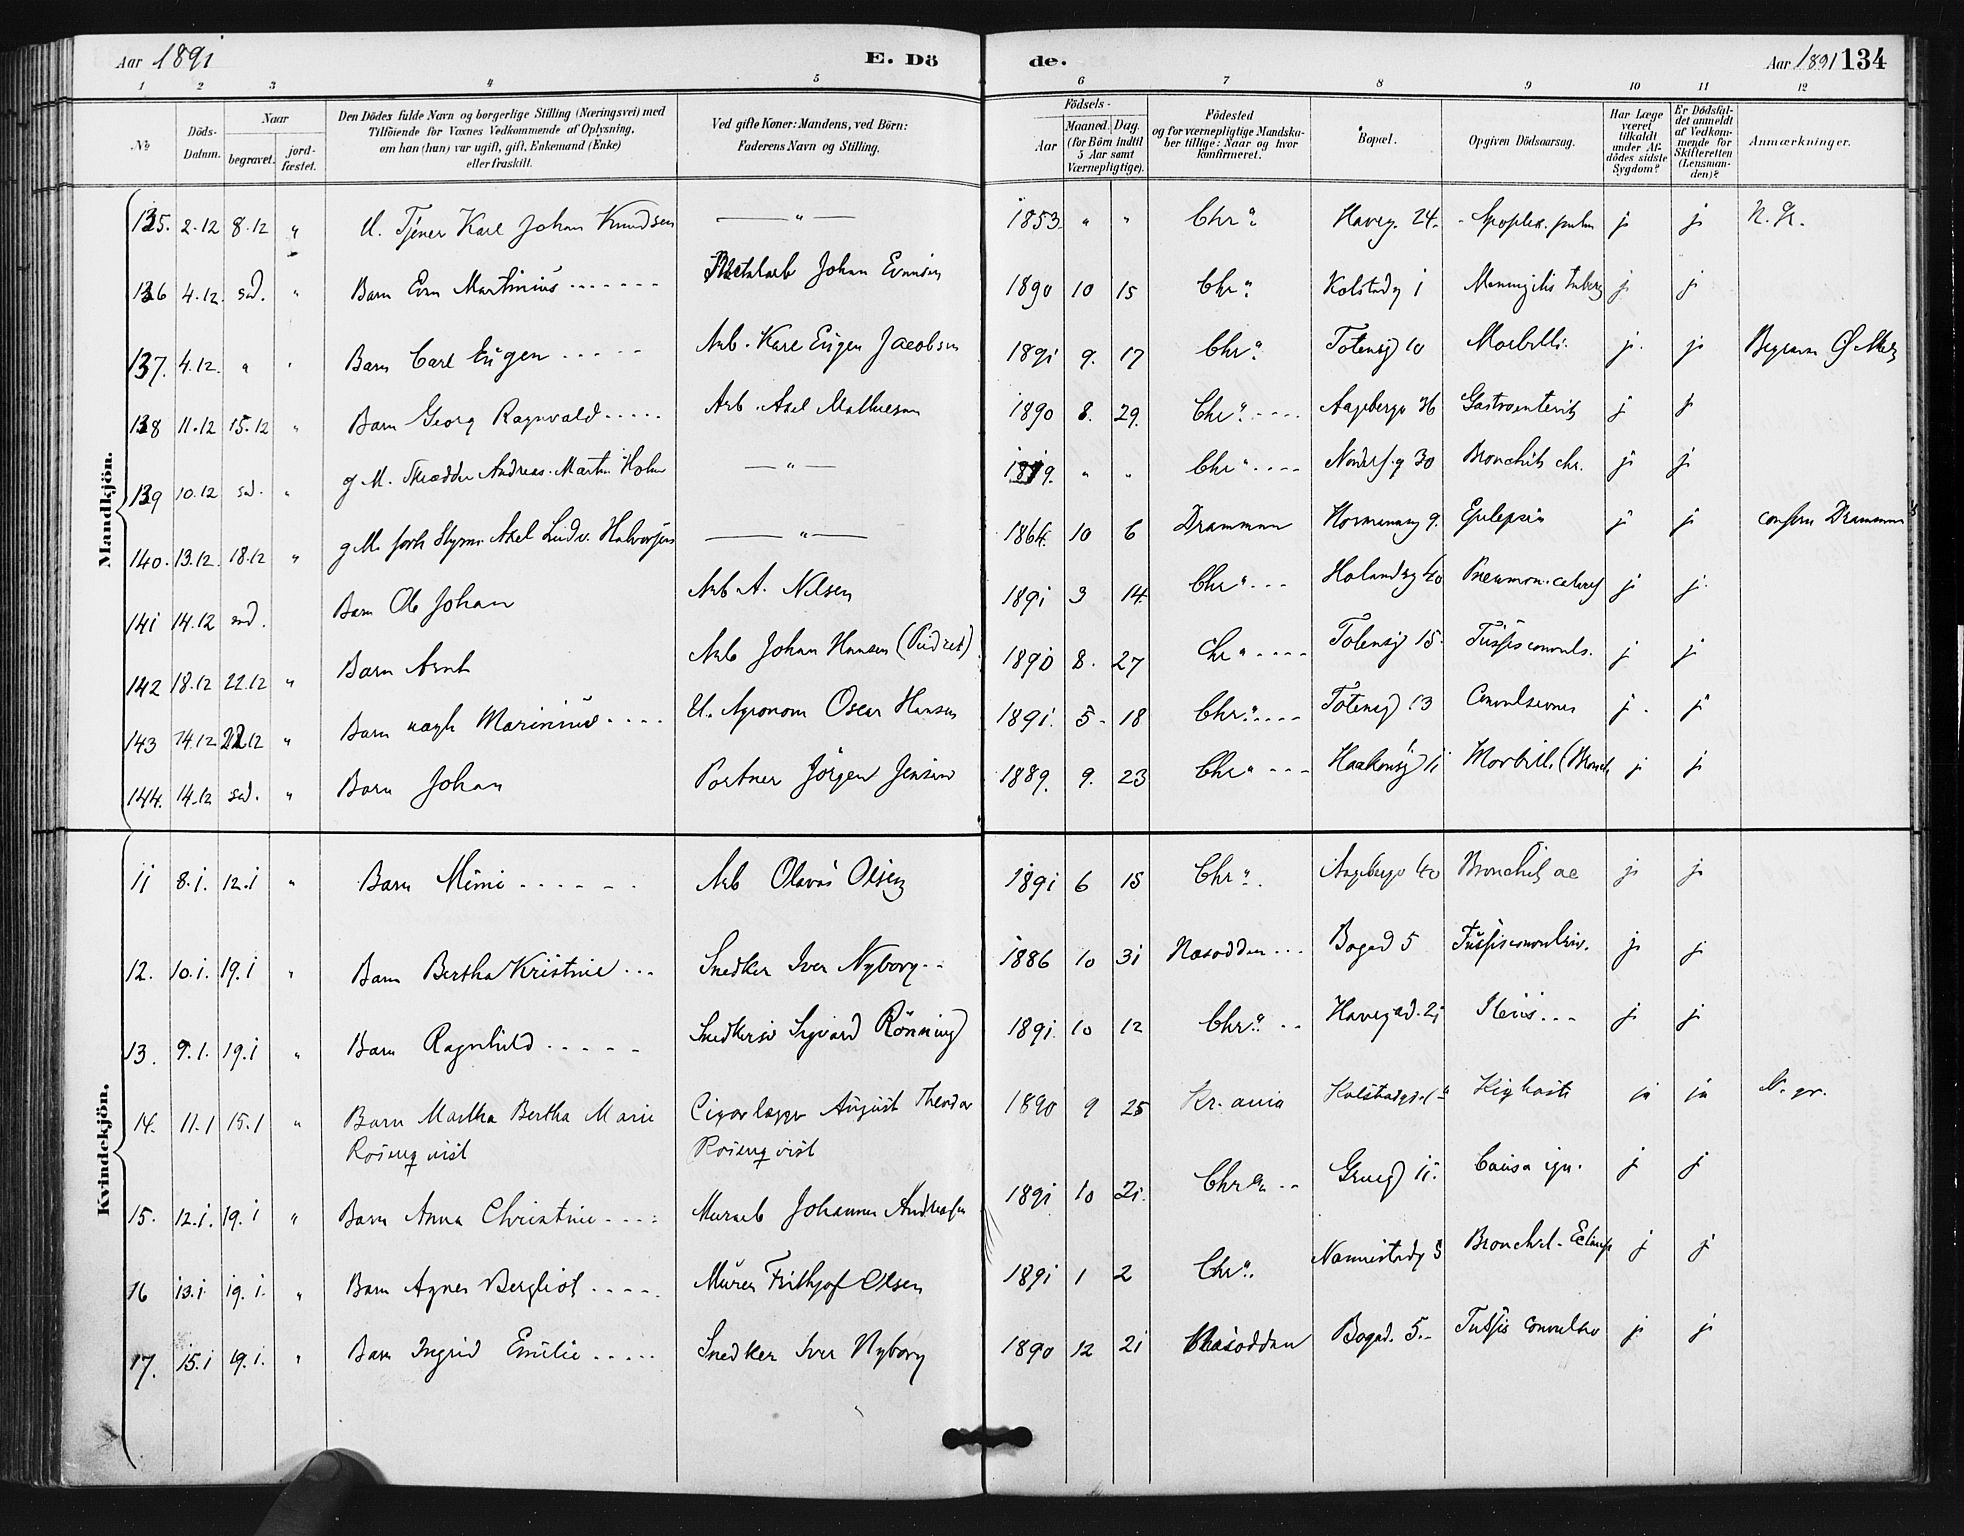 Aar 1891
E. Dö
de.
Aar 1891 134
1 2 3 4 5 6 7 8 9 10 11 12
No
Döds-Datum.
Naar
begravet.
jord-fæstet.
Den Dödes fulde Navn og borgerlige Stilling (Næringsvei) med
Tilföiende for Voxnes Vedkommende af Oplysning,
om han (hun) var ugift, gift, Enkemand (Enke)
eller fraskilt.
Ved gifte Koner: Mandens, ved Börn:
Faderens Navn og Stilling.
Födsels-
Aar
Maaned. Dag.
(for Börn indtil
5 Aar samt
Værnepligtige).
Födested
og for værnepligtige Mandska-
ber tillige: Naar og hvor
konfirmeret.
Bopæl.
Opgiven Dödsaarsag.
Har Læge
været
tilkaldt
under Af-
dödes sidste
Sygdom?
Er Dödsfal-
det anmeldt
af Vedkom-
mende for
Skifteretten
(Lensman-
den)?
Anmærkninger.
Mandkjön.
135. 2.12 8.12 " U. Tjener Karl Johan Knudsen — " — 1853 " " Chra. Haveg. 24. Apoplex. pulm j j N. Gr.
136 4.12. sd. " Barn Martinius Johan 1890 10 15 Chra. Kolstadg 1 Meningitis tuberc j j
137. 4.12. " " Barn Carl Eugen Arb. Karl Eugen Jacobsen 1891 9. 17 Chra. Totensg 10 Morbilli. j. j
138 11.12 15.12 " Barn Georg Ragnvald Arb. Axel Mathiesen 1890 8. 29. Chra. Aagebergv 36 Gastroenterit j j
139 10.12 sd. " g M. Skrædder Andreas Martin Holm — " — " " Chra. 30 Bronchit chr. j j
140. 13.12. 18.12 " g M. Axel Ludv. Halvorsen — " — 1864. 10 6 Drammen 9. Epilepsia j j Drammen
141 14.12 sd. Barn Ole Johan Arb A. Nilsen 1891 3 14 Chra. 40 j j.
142 18.12 22.12 " Barn Arnt Arb Johan Hansen 1890 8. 27 Chra. Totensg 15. Tussis convuls. j j
143 14.12 22.12 " Barn uægt Marinius U. Agronom Oscar Hansen 1891. 5 18 Chra. Totensg 13 Convulsiones j. j
144. 14.12 sd. " Barn Johan Portner Jörgen Jensen 1889. 9. 23 Chra. Haakonsg 11 Morbill. (Bronch j j
Kvindekjön.
11 8.1. 12.1 " Barn Mimi Arb Olavus Olsen 1891 6 15 Chra. Aagebergv 40 Bronchit ac j j
12. 10.1. 19.1 " Barn Bertha Kristine Snedker Iver Nyborg 1886 10 31 Næsodden Bogad 5 Tussis convulsiv. j j
13. 9.1. 19.1 " Barn Ragnhild Sigvard Rönning 1891. 10 12 Chra. Havegad. 21 j j
14. 11.1 15.1 " Barn Martha Bertha Marie Cigarlægger August Theodor 1890 9 25 Kr.ania Kighoste ja ja N. gr.
Rosenqvist Rosenqvist
15. 12.1. 19.1 " Barn Anna Christine Murarb Johannes Andreasen 1891 10 21. Chra. Grueg 11. Causa ign. j j
16 13.1 19.1. " Barn Agnes Bergliot Murer Frithjof Olsen 1891 1 2 Chra. Nannestadg 5 Bronchit. Eclamp j j
17. 15.1 19.1. " Barn Ingrid Emilie Snedker Iver Nyborg 1890 12 21 Næsodden Bogad. 5. Tussis convulsiv j j